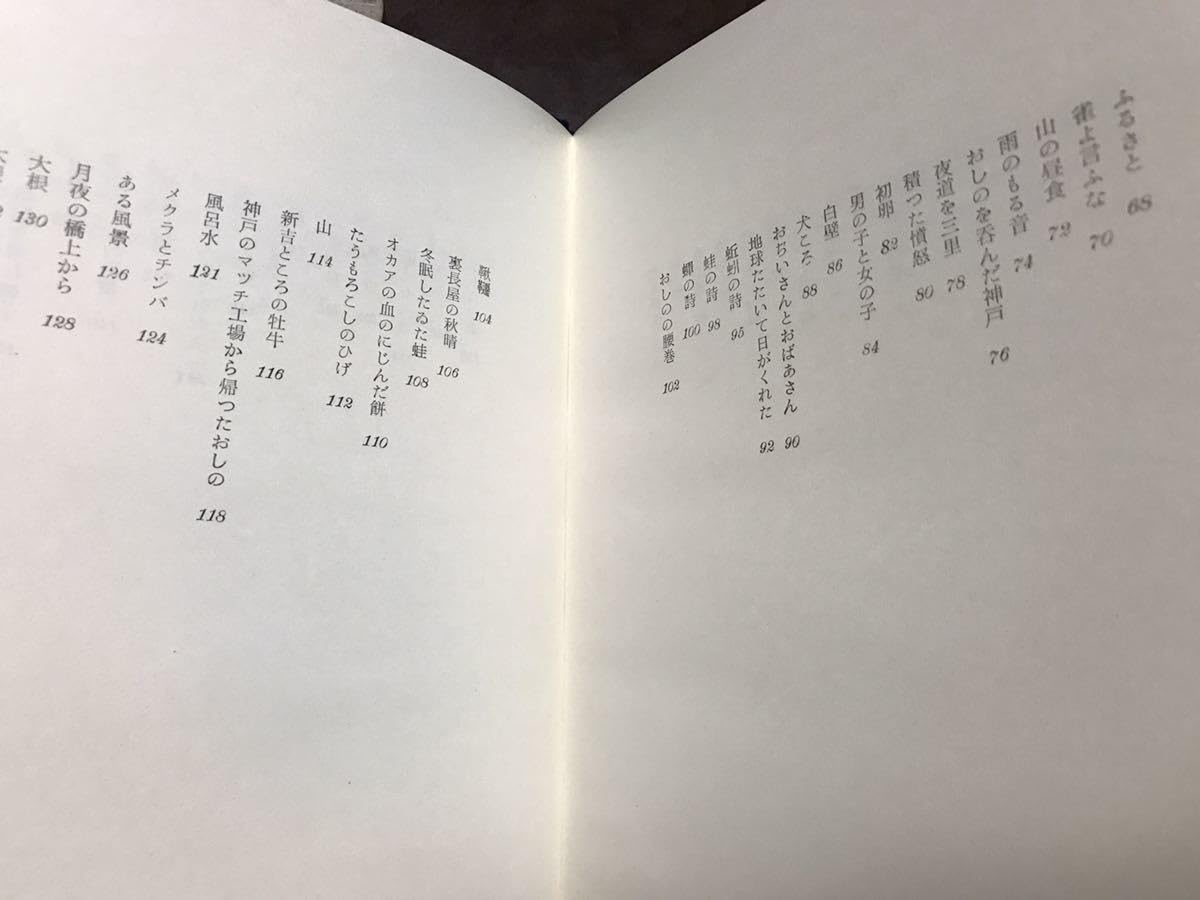 ふるさと 68
雀よ言ふな 70
山の昼食 72
雨のもる音 74
おしのを呑んだ神戸 76
夜道を三里 78
積つた憤怒 80
初卵 82
男の子と女の子 84
白壁 86
犬ころ 88
おぢいさんとおばあさん 90
地球たたいて日がくれた 92
蚯蚓の詩 95
蛙の詩 98
蟬の詩 100
おしのの腰巻 102
鞦韆 104
裏長屋の秋晴 106
冬眠したゐた蛙 108
オカアの血のにじんだ餅 110
たうもろこしのひげ 112
山 114
新吉ところの牡牛 116
神戸のマツチ工場から帰つたおしの 118
風呂水 121
メクラとチンバ 124
ある風景 126
月夜の橋上から 128
大根 130